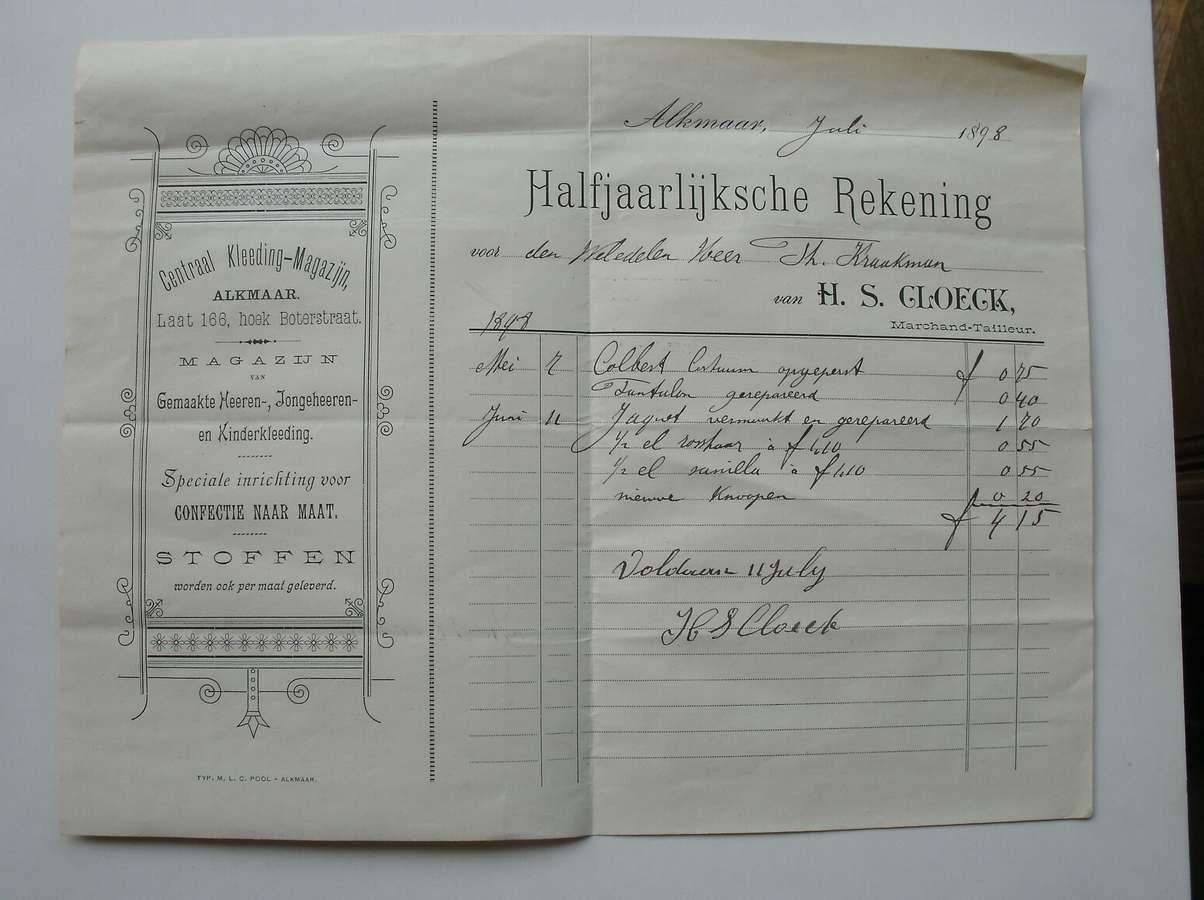 Centraal Kleeding-Magazijn,
ALKMAAR.
Laat 166, hoek Boterstraat.
MAGAZIJN
VAN
Gemaakte Heeren-, Jongeheeren-
en Kinderkleeding.
Speciale inrichting voor
CONFECTIE NAAR MAAT.
STOFFEN
worden ook per maat geleverd.
TYP. M. L. C. POOL - ALKMAAR.
Alkmaar, Juli 1898
Halfjaarlijksche Rekening
voor den Weledelen Heer Th. Kraakman
van H. S. CLOECK,
Marchand-Tailleur.
1898
Mei 7 Colbert Costuum opgeperst f 0 75
Pantalon gerepareerd 0 40
Juni 11 Jaquet vermaakt en gerepareerd 1 70
1/2 el rosshaar à f 1,10 0 55
1/2 el sanilla à f 1,10 0 55
nieuwe Knoopen 0 20
f 4 15
Voldaan 11 July
H S Cloeck